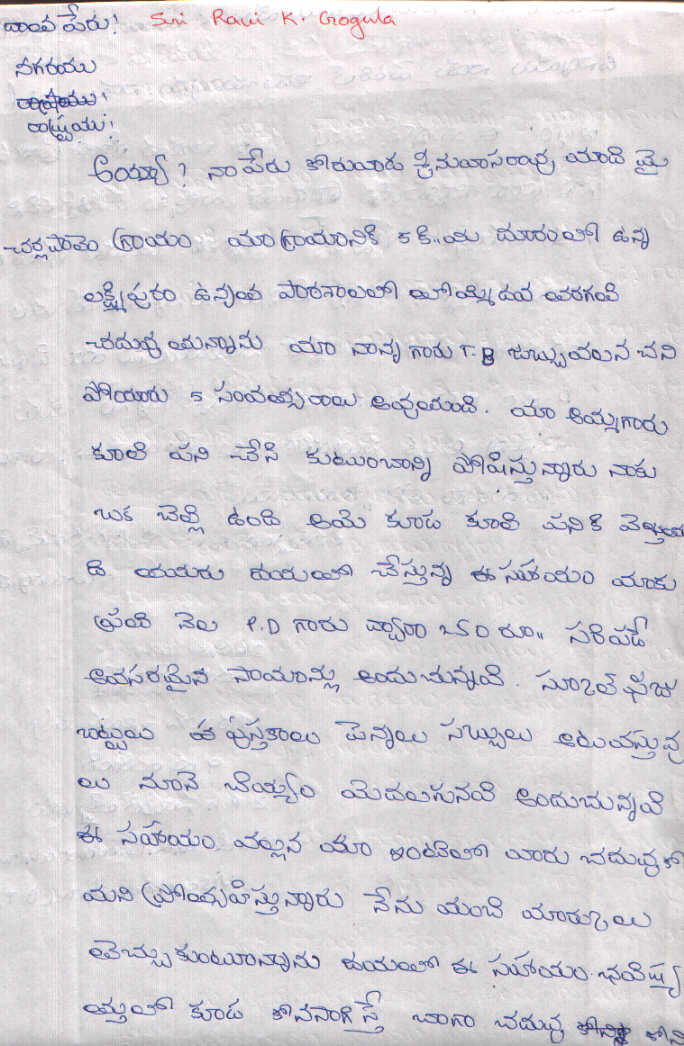 దాంప పేరు! Sri Ravi K. Gogula
నగరము
రాష్ట్రము!
రాష్ట్రము!
అయ్యా? నా పేరు కోరువారు శ్రీనువాసరావు మాది మై
చర్లపాలెం గ్రామం మా గ్రామానికి 5 కి..మి దూరంలో ఉన్న
లక్ష్మిపురం ఉన్నంత పాఠశాలలో తొమ్మిదవ తరగతి
చదువు చున్నాను మా నాన్న గారు T.B జబ్బువలన చని
పోయారు 5 సంవత్సరాలు అవుతుంది. మా అమ్మగారు
కూలి పని చేసి కుటుంబాన్ని పోషిస్తున్నారు నాకు
ఒక చెల్లి ఉంది ఆమె కూడ కూలి పనికి వెళ్తుం
ది తమరు దయతో చేస్తున్న ఈ సహాయం మాకు
ప్రతి నెల P.D గారు ద్వారా ౬౫౦ రూ,, సరిపడే
అవసరమైన సామాన్లు అందుచున్నవి. స్కూల్ ఫీజు
బట్టలు పుస్తకాలు పెన్నులు సబ్బులు ఆటవస్తువు
లు నూనె బియ్యం మొదలగునవి అందుచున్నవి
ఈ సహాయం వల్లన మా ఇంటిలో వారు చదువుకో
మని ప్రోత్సహిస్తున్నారు నేను మంచి మార్కులు
తెచ్చుకుంటూన్నాను దయతో ఈ సహాయం భవిష్య
త్తులో కూడ కొనసాగిస్తే బాగా చదువు కొని